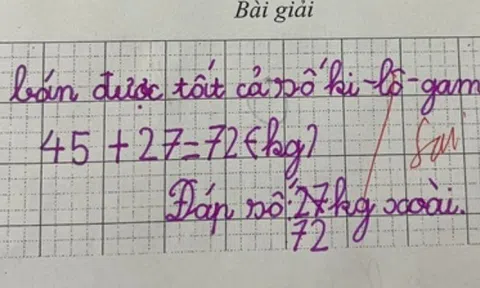 Bài giải
bán được tất cả số ki-lô-gam
45 + 27 = 72 (kg)
Sai
Đáp số: 27 kg xoài.
72